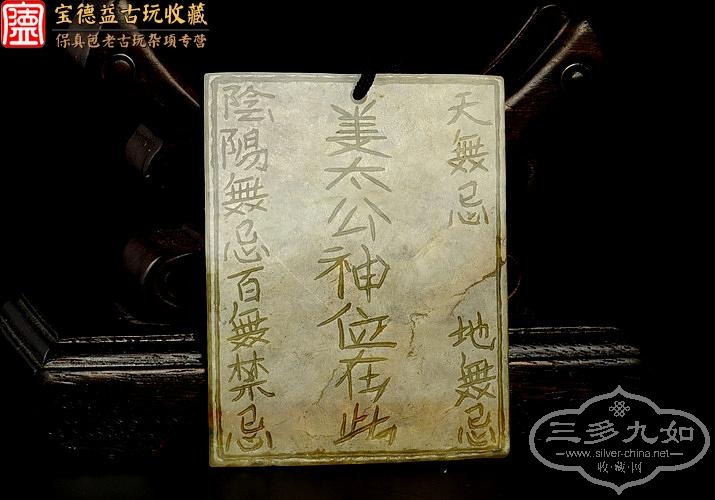 宝德益古玩收藏
保真包老古玩杂项专营
天無忌 地無忌
姜太公神位在此
陰陽無忌百無禁忌
三多九如
www.silver-china.net
收藏网